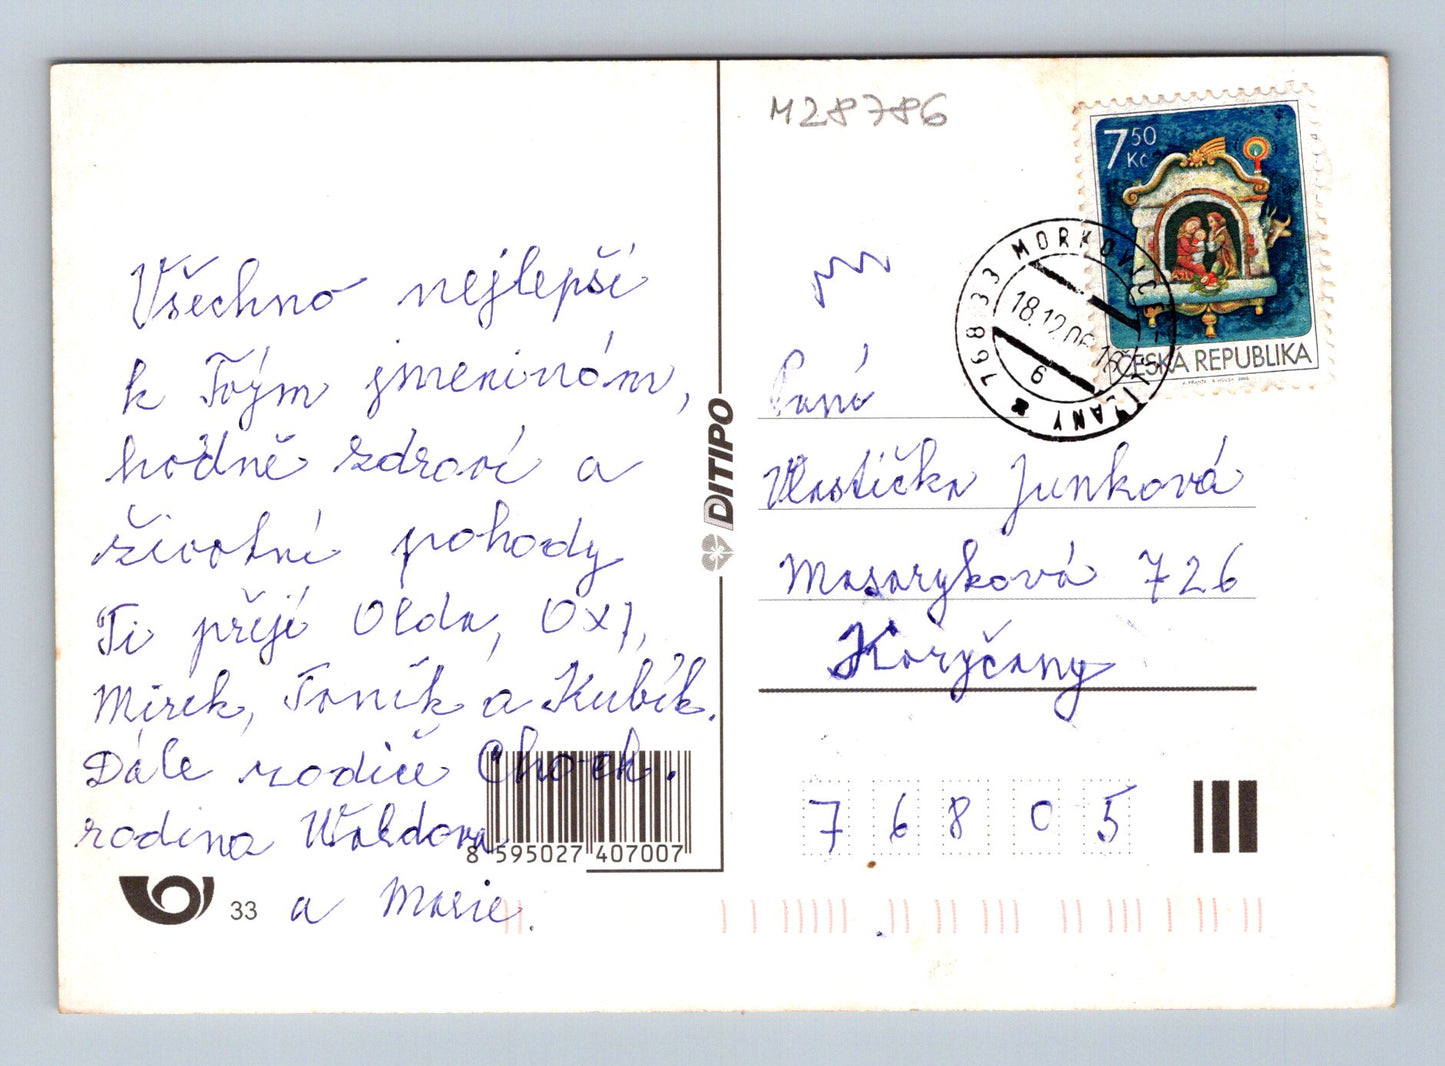 Všechno nejlepší
k Tvým jmeninám,
hodně zdraví a
životní pohody
Ti přejí Olda,
Mirek, Toník a Kubík.
Dále rodiče
rodina
a Marie.
33
8 595027 407007
DITIPO
M28786
7 50 Kč
ČESKÁ REPUBLIKA
768 33 MORKOVICE-SLÍŽANY
18.12.06
6
Paní
Vlastička Junková
Masaryková 726
Koryčany
7 6 8 0 5